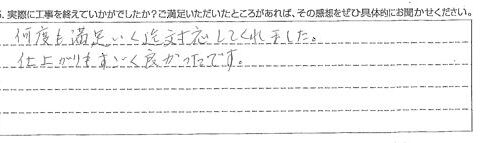 5. 実際に工事を終えていかがでしたか？ご満足いただいたところがあれば、その感想をぜひ具体的にお聞かせください。
何度も満足いく迄対応してくれました。
仕上がりもすごく良かったです。